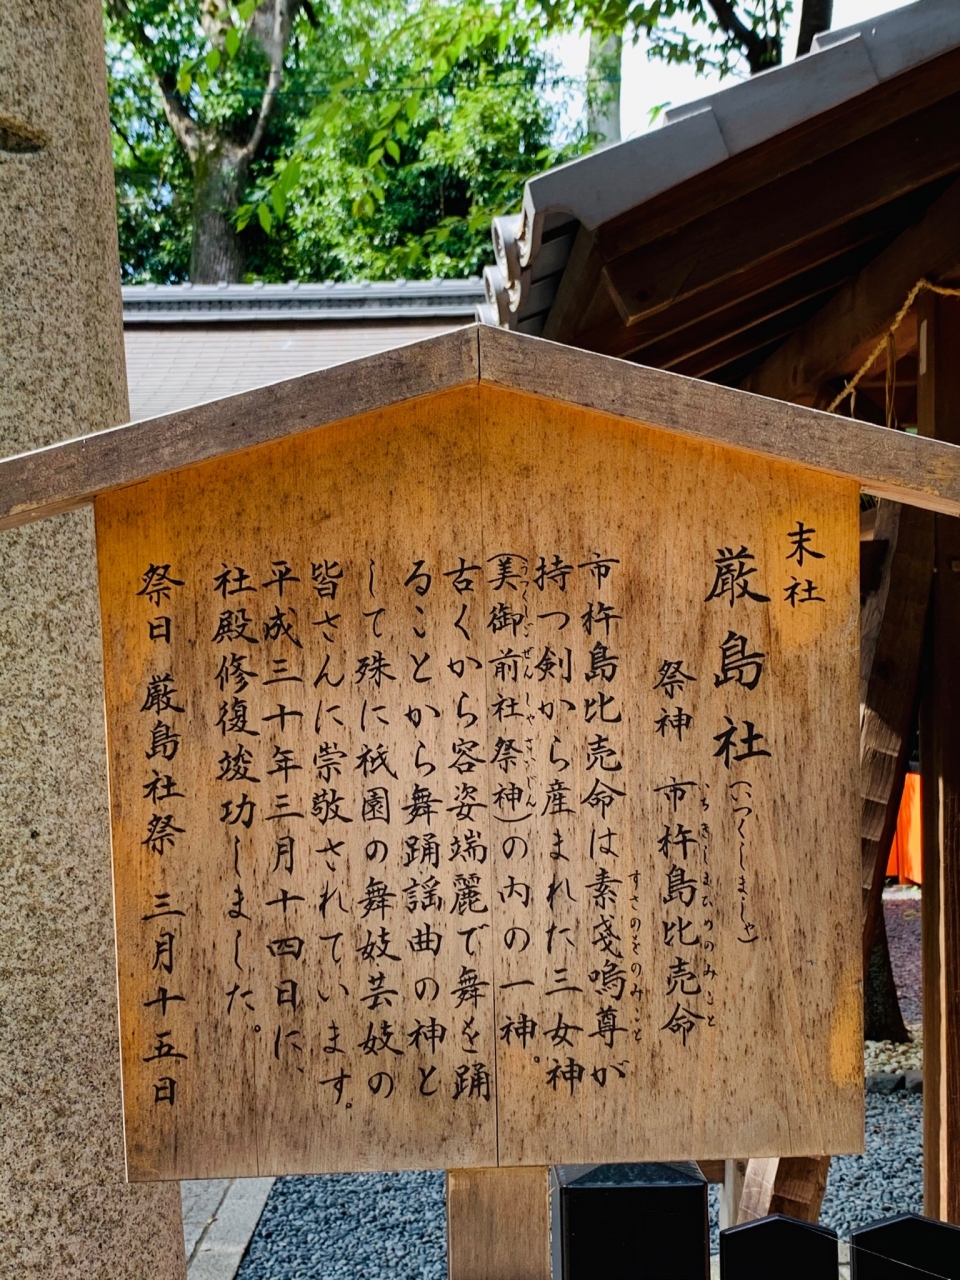 末社
厳島社(いつくしましゃ)
祭神 市杵島比売命
いちきしまひめのみこと
市杵島比売命は素戔嗚尊が
すさのをのみこと
持つ剣から産まれた三女神
(美御前社祭神)の内の一神。
うつくしごぜんしゃさいじん
古くから容姿端麗で舞を踊
ることから舞踊謡曲の神と
して殊に祇園の舞妓芸妓の
皆さんに崇敬されています。
平成三十年三月十四日に、
社殿修復竣功しました。
祭日 厳島社祭 三月十五日